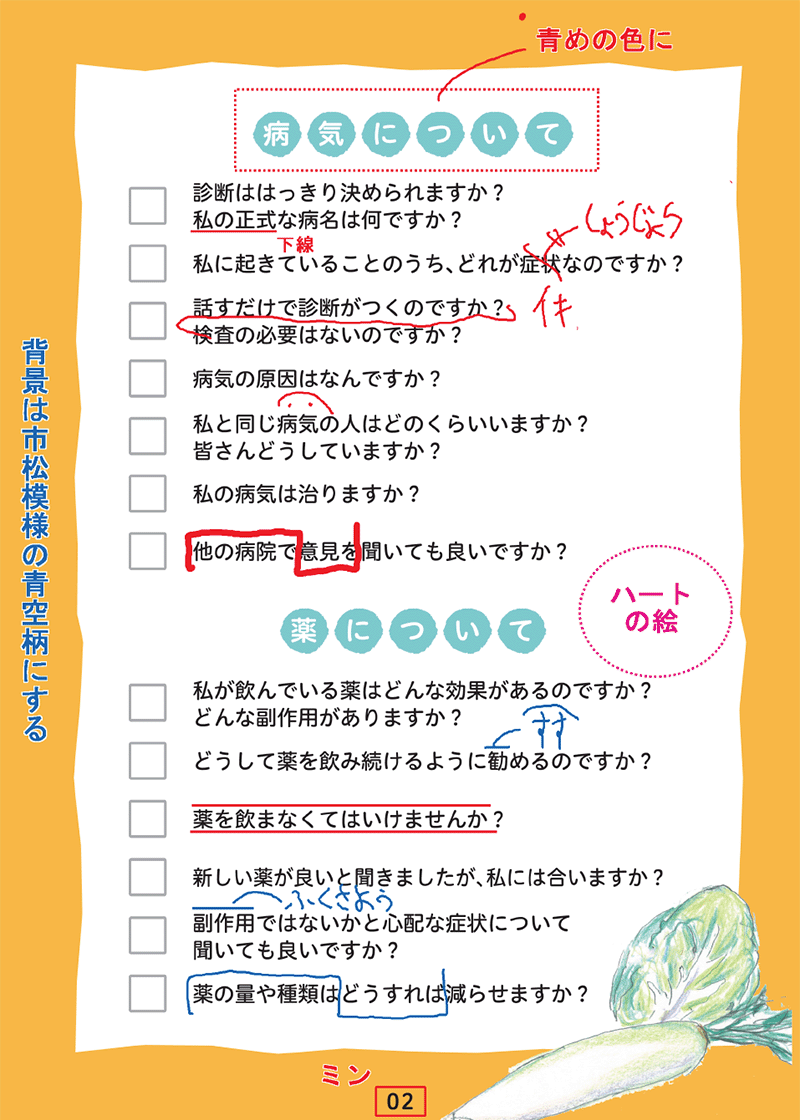 青めの色に
病気について
診断ははっきり決められますか？
私の正式な病名は何ですか？
下線
しょうじょう
私に起きていることのうち、どれが症状なのですか？
話すだけで診断がつくのですか？
検査の必要はないのですか？
病気の原因はなんですか？
私と同じ病気の人はどのくらいいますか？
皆さんどうしていますか？
私の病気は治りますか？
他の病院で意見を聞いても良いですか？
背景は市松模様の青空柄にする
ハート
の絵
薬について
私が飲んでいる薬はどんな効果があるのですか？
どんな副作用がありますか？
すす
どうして薬を飲み続けるように勧めるのですか？
薬を飲まなくてはいけませんか？
新しい薬が良いと聞きましたが、私には合いますか？
ふくさよう
副作用ではないかと心配な症状について
聞いても良いですか？
薬の量や種類はどうすれば減らせますか？
ミン
02